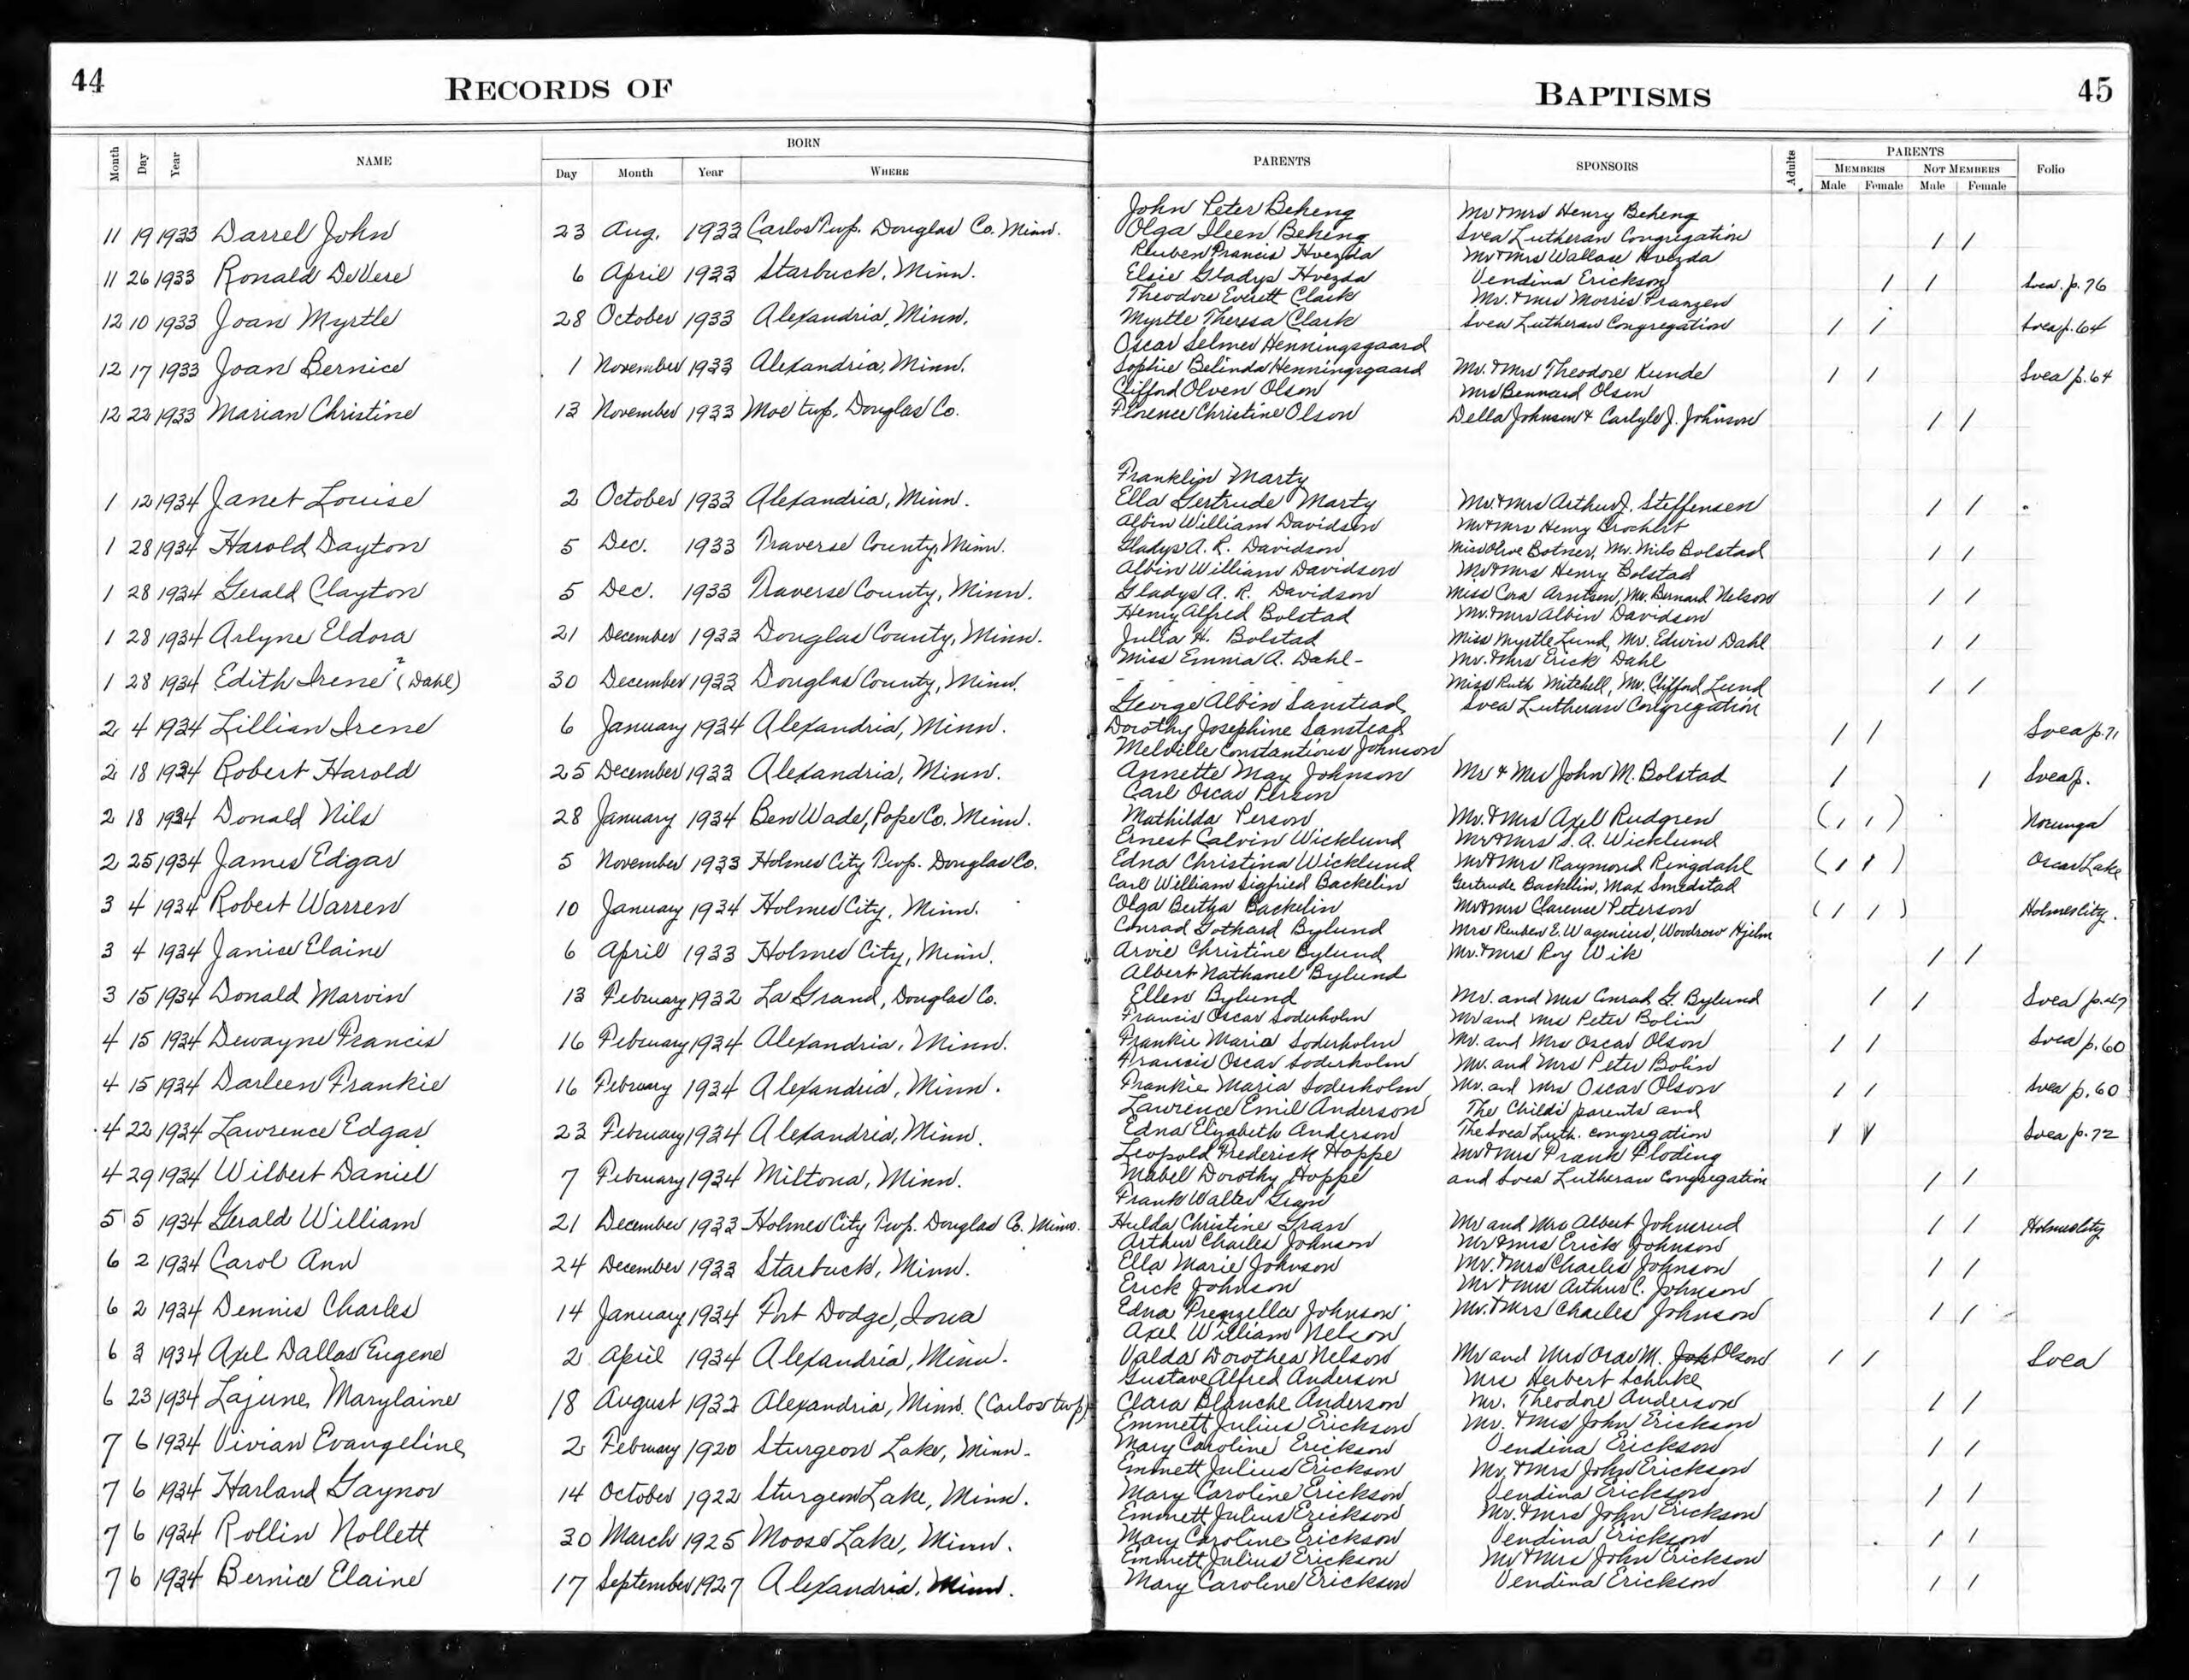 44
RECORDS OF
Month Day Year NAME BORN
Day Month Year WHERE
11 19 1933 Darrel John 23 Aug. 1933 Carlos Twp. Douglas Co. Minn.
11 26 1933 Ronald DeVere 6 April 1933 Starbuck, Minn.
12 10 1933 Joan Myrtle 28 October 1933 Alexandria, Minn.
12 17 1933 Joan Bernice 1 November 1933 Alexandria, Minn.
12 22 1933 Marian Christine 13 November 1933 Moe twp, Douglas Co.
1 12 1934 Janet Louise 2 October 1933 Alexandria, Minn.
1 28 1934 Harold Dayton 5 Dec. 1933 Traverse County, Minn.
1 28 1934 Gerald Clayton 5 Dec. 1933 Traverse County, Minn.
1 28 1934 Arlyne Eldora 21 December 1933 Douglas County, Minn.
1 28 1934 Edith Irene ? (Dahl) 30 December 1933 Douglas County, Minn.
2 4 1934 Lillian Irene 6 January 1934 Alexandria, Minn.
2 18 1934 Robert Harold 25 December 1933 Alexandria, Minn.
2 18 1934 Donald Nils 28 January 1934 Ben Wade, Pope Co. Minn.
2 25 1934 James Edgar 5 November 1933 Holmes City Twp. Douglas Co.
3 4 1934 Robert Warren 10 January 1934 Holmes City, Minn.
3 4 1934 Janice Elaine 6 April 1933 Holmes City, Minn.
3 15 1934 Donald Marvin 13 February 1932 La Grand, Douglas Co.
4 15 1934 Dewayne Francis 16 February 1934 Alexandria, Minn.
4 15 1934 Darleen Frankie 16 February 1934 Alexandria, Minn.
4 22 1934 Lawrence Edgar 23 February 1934 Alexandria, Minn.
4 29 1934 Wilbert Daniel 7 February 1934 Miltona, Minn.
5 5 1934 Gerald William 21 December 1933 Holmes City Twp. Douglas Co. Minn.
6 2 1934 Carol Ann 24 December 1933 Starbuck, Minn.
6 2 1934 Dennis Charles 14 January 1934 Fort Dodge, Iowa
6 3 1934 Axel Dallas Eugene 2 April 1934 Alexandria, Minn.
6 23 1934 Lajune Marylaine 18 August 1932 Alexandria, Minn. (Carlos twp)
7 6 1934 Vivian Evangeline 2 February 1920 Sturgeon Lake, Minn.
7 6 1934 Harland Gaynor 14 October 1922 Sturgeon Lake, Minn.
7 6 1934 Rollin Nollett 30 March 1925 Moose Lake, Minn.
7 6 1934 Bernice Elaine 17 September 1927 Alexandria, Minn.
BAPTISMS
45
PARENTS SPONSORS Adults PARENTS Folio
MEMBERS NOT MEMBERS
Male Female Male Female
John Peter Beheng Mr & Mrs Henry Beheng
Olga Ileen Beheng Svea Lutheran Congregation / /
Reuben Francis Hvezda Mr & Mrs Wallace Hvezda
Elsie Gladys Hvezda Vendina Erickson / / Svea. p. 76
Theodore Everett Clark Mr. & Mrs Morris Franzen
Myrtle Theresa Clark Svea Lutheran Congregation / / Svea p. 64
Oscar Selmer Henningsgaard
Sophie Belinda Henningsgaard Mr. & Mrs Theodore Kunde / / Svea p. 64
Clifford Olven Olson Mrs Bennard Olson
Florence Christine Olson Della Johnson & Carlyle J. Johnson / /
Franklin Marty
Ella Gertrude Marty Mr. & Mrs Arthur J. Steffensen / /
Albin William Davidson Mr & Mrs Henry Brochert
Gladys A. R. Davidson Miss Olive Botner, Mr. Milo Bolstad / /
Albin William Davidson Mr & Mrs Henry Bolstad
Gladys A. R. Davidson Miss Cora Arntson, Mr. Bernard Nelson / /
Henry Alfred Bolstad Mr. & Mrs Albin Davidson
Julia H. Bolstad Miss Myrtle Lund, Mr. Edwin Dahl / /
Miss Emma A. Dahl - Mr. & Mrs Erick Dahl
- - - Miss Ruth Mitchell, Mr. Clifford Lund / /
George Albin Sanstead Svea Lutheran Congregation
Dorothy Josephine Sanstead / / Svea p. 71
Melville Constantious Johnson
Annette May Johnson Mr & Mrs John M. Bolstad / / Svea p.
Carl Oscar Person
Mathilda Person Mr. & Mrs Axel Rudgren ( / / ) Norunga
Ernest Calvin Wicklund Mr & Mrs S. A. Wicklund
Edna Christina Wicklund Mr & Mrs Raymond Ringdahl ( / / ) Oscar Lake
Carl William Sigfried Backelin Gertrude Backelin, Max Smedstad
Olga Bertha Backelin Mr & Mrs Clarence Peterson ( / / ) Holmes City.
Conrad Gothard Bylund Mrs Reuben E. Wagenius, Woodrow Hjelm
Arvie Christine Bylund Mr. & Mrs Roy Wik / /
Albert Nathanel Bylund
Ellen Bylund Mr. and Mrs Conrad G. Bylund / / Svea p. 47
Francis Oscar Soderholm Mr and Mrs Peter Bolin
Frankie Maria Soderholm Mr. and Mrs Oscar Olson / / Svea p. 60
Francis Oscar Soderholm Mr. and Mrs Peter Bolin
Frankie Maria Soderholm Mr. and Mrs Oscar Olson / / Svea p. 60
Lawrence Emil Anderson The Childs parents and
Edna Elizabeth Anderson The Svea Luth. congregation / / Svea p. 72
Leopold Frederick Hoppe Mr & Mrs Frank Floding
Mabel Dorothy Hoppe and Svea Lutheran Congregation / /
Frank Walter Gran
Hulda Christine Gran Mr and Mrs Albert Johnsrud / / Holmes City
Arthur Charles Johnson Mr & Mrs Erick Johnson
Ella Marie Johnson Mr. & Mrs Charles Johnson / /
Erick Johnson Mr & Mrs Arthur C. Johnson
Edna Prenzella Johnson Mr. & Mrs Charles Johnson / /
Axel William Nelson
Valda Dorothea Nelson Mr and Mrs Oral M. Olson / / Svea
Gustave Alfred Anderson Mrs Herbert Schake
Clara Blanche Anderson Mr. Theodore Anderson / /
Emmett Julius Erickson Mr. & Mrs John Erickson
Mary Caroline Erickson Vendina Erickson / /
Emmett Julius Erickson Mr. & Mrs John Erickson
Mary Caroline Erickson Vendina Erickson / /
Emmett Julius Erickson Mr. & Mrs John Erickson
Mary Caroline Erickson Vendina Erickson / /
Emmett Julius Erickson Mr & Mrs John Erickson
Mary Caroline Erickson Vendina Erickson / /